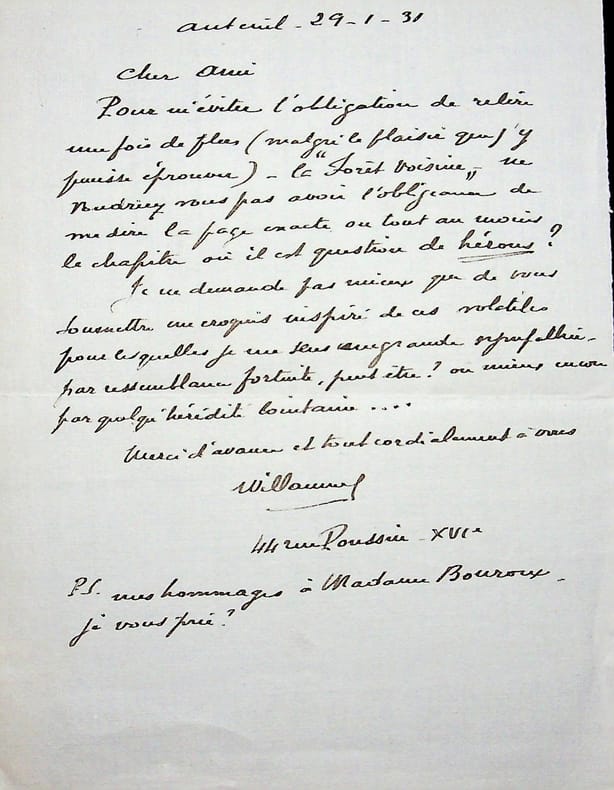 Auteuil - 29-1-31
Cher Ami
Pour m'éviter l'obligation de relire
une fois de plus (malgré le plaisir que j'y
puisse éprouver) - la "Forêt voisine" - ne
voudriez vous pas avoir l'obligeance de
me dire la page exacte ou tout au moins
le chapitre où il est question de hérons ?
Je ne demande pas mieux que de vous
soumettre un croquis inspiré de ces volatiles
pour lesquelles je me sens une grande sympathie -
par ressemblance fortuite, peut être ? ou mieux encore
par quelqu'hérédité lointaine ....
Merci d'avance et tout cordialement à vous
Willaume
44 rue Poussin - XVIe
P.S. mes hommages à Madame Bouroux -
je vous prie ?